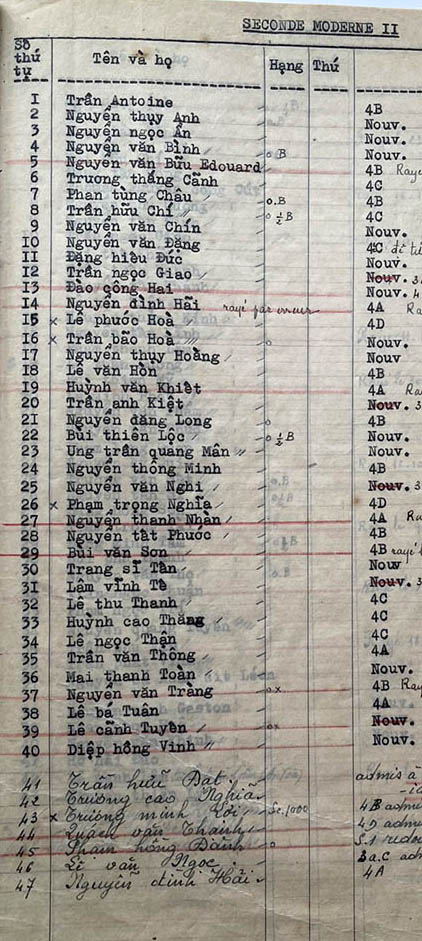 SECONDE MODERNE II
Số thứ tự Tên và họ Hạng Thứ
I Trần Antoine 4B
2 Nguyễn thụy Anh Nouv.
3 Nguyễn ngọc Ẩn Nouv.
4 Nguyễn văn Bình o B Nouv.
5 Nguyễn văn Bửu Edouard 4B Rayé
6 Trương thắng Cảnh 4C
7 Phan tùng Châu o.B 4B
8 Trần hữu Chí o ½B 4C
9 Nguyễn văn Chín Nouv.
IO Nguyễn văn Đặng 4C
II Đặng hiếu Đức Nouv.
I2 Trần ngọc Giao Nouv. 3
I3 Đào công Hai Nouv. 4
I4 Nguyễn đình Hãi rayé par erreur 4A Ra
I5 x Lê phước Hoà 4D
I6 x Trần bảo Hoà o Nouv.
I7 Nguyễn thụy Hoằng Nouv
I8 Lê văn Hòn 4B
I9 Huỳnh văn Khiết 4A Ra
20 Trần anh Kiệt Nouv. 3
2I Nguyễn đăng Long o 4B
22 Bùi thiên Lộc o ½B Nouv.
23 Ung trần quang Mân Nouv.
24 Nguyễn thông Minh 4B
25 Nguyễn văn Nghi Nouv. 3
26 x Phạm trọng Nghĩa 4D
27 Nguyễn thanh Nhàn 4A
28 Nguyễn tất Phước 4B
29 Bùi văn Sơn 4B rayé
30 Trang sĩ Tấn Nouv
3I Lâm vĩnh Tê Nouv. 3
32 Lê thu Thanh 4C
33 Huỳnh cao Thăng 4C
34 Lê ngọc Thận 4C
35 Trần văn Thông 4A
36 Mai thanh Toàn Nouv.
37 Nguyễn văn Tràng o x 4B Ray
38 Lê bá Tuân 4A
39 Lê cảnh Tuyền o x Nouv.
40 Diệp hồng Vinh Nouv.
41 Trần hữu Đạt admis à
42 Trương cao Nghĩa
43 x Trương minh Lợi Sc.1000 4B admis
44 Quách văn Thanh 4D admis
45 Phạm hồng Danh o
46 Lí văn Ngọc 3a.C adm
47 Nguyễn đình Hải 4A